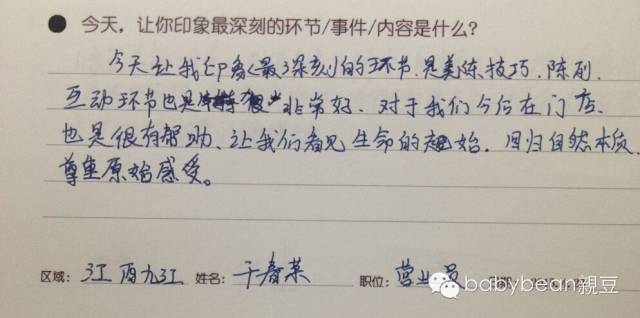 ● 今天，让你印象最深刻的环节/事件/内容是什么？
今天让我印象最深刻的环节.是美陈.技巧.陈列.
互动环节也是 非常好.对于我们今后在门店.
也是很有帮助、让我们看见生命的起始.回归自然本质.
尊重原始感受。
区域：江西九江 姓名：干春菜 职位：营业员
babybean親豆